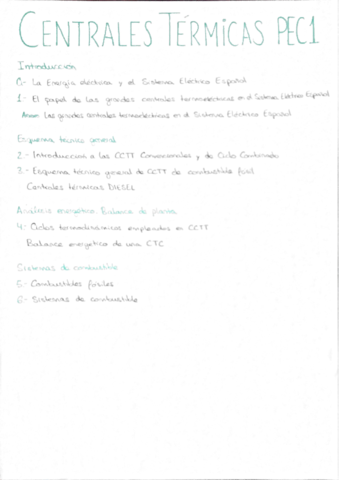 CENTRALES TÉRMICAS PEC1
Introducción
0- La Energía eléctrica y el Sistema Eléctrico Español
1- El papel de las grandes centrales termoeléctricas en el Sistema Eléctrico Español
Anexo: Las grandes centrales termoeléctricas en el Sistema Eléctrico Español
Esquema técnico general
2- Introducción a las CCTT Convencionales y de Ciclo Combinado
3- Esquema técnico general de CCTT de combustible fósil
Centrales térmicas DIESEL
Análisis energético. Balance de planta
4- Ciclos termodinámicos empleados en CCTT
Balance energético de una CTC
Sistemas de combustible
5- Combustibles fósiles
6- Sistemas de combustible